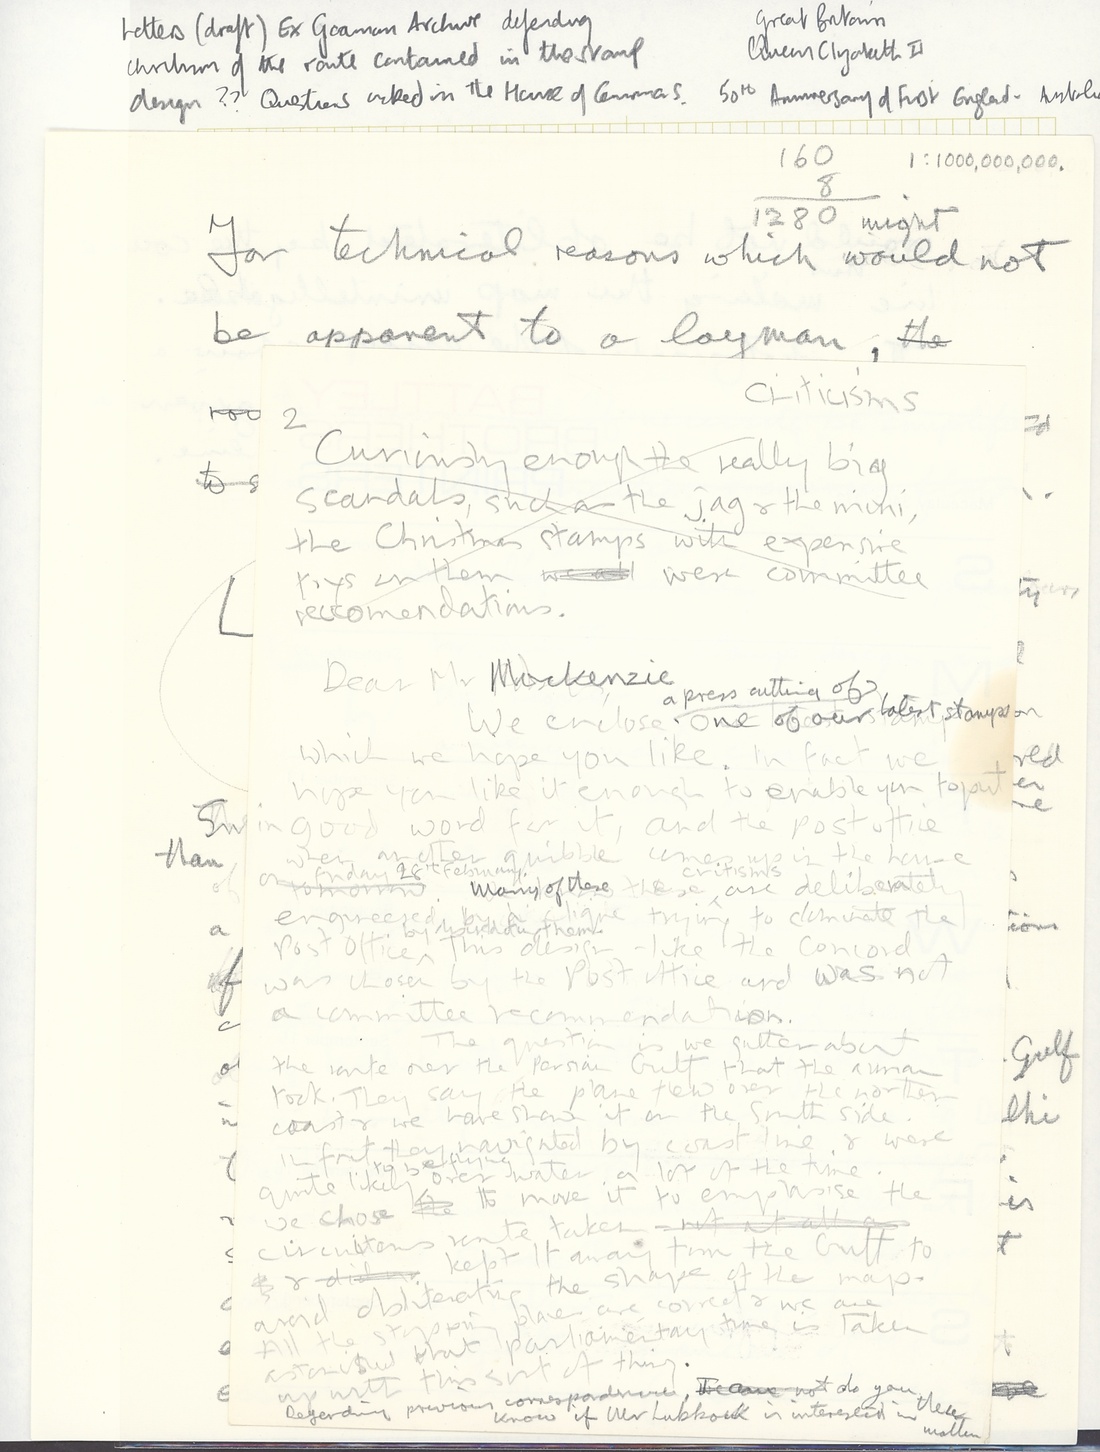 Letters (draft) Ex Goaman Archive defending
criticism of the route contained in the stamp
design ?? Questions asked in the House of Commons.
Great Britain
Queen Elizabeth II
50th Anniversary of First England - Australia
160
8
1280
1:1000,000,000.
might
For technical reasons which would not
be apparent to a layman, the
to s
criticisms
2
Curiously enough the really big
scandals, such as the jag & the mini,
the Christmas stamps with expensive
toys on them we all were committee
reccomendations.
Dear Mr Mackenzie
a press cutting of
We enclose one of our latest stamps on
which we hope you like. In fact we
hope you like it enough to enable you to put
in good word for it, and the post office
when another quibble comes up in the house
on Friday 28th February.
tomorrow. Many of these these criticisms are deliberately
engineered by a clique trying to dominate the
Post Office by them. This design - like the Concord
was chosen by the Post Office and was not
a committee recommendation.
The question is we gather about
the route over the Persian Gulf that the airman
took. They say the plane flew over the northern
coast & we have shown it on the South side.
In fact they navigated by coast line & were
quite likely to be flying over water a lot of the time.
we chose the to move it to emphasise the
circuitous route taken not at all a
& kept it away from the Gulf to
avoid obliterating the shape of the map.
All the stopping places are correct & we are
astonished that parliamentary time is taken
up with this sort of thing.
Regarding previous correspondence, not do you
know if Mr Lubbock is interested in these
matters
than
a
Gulf
lhi
is